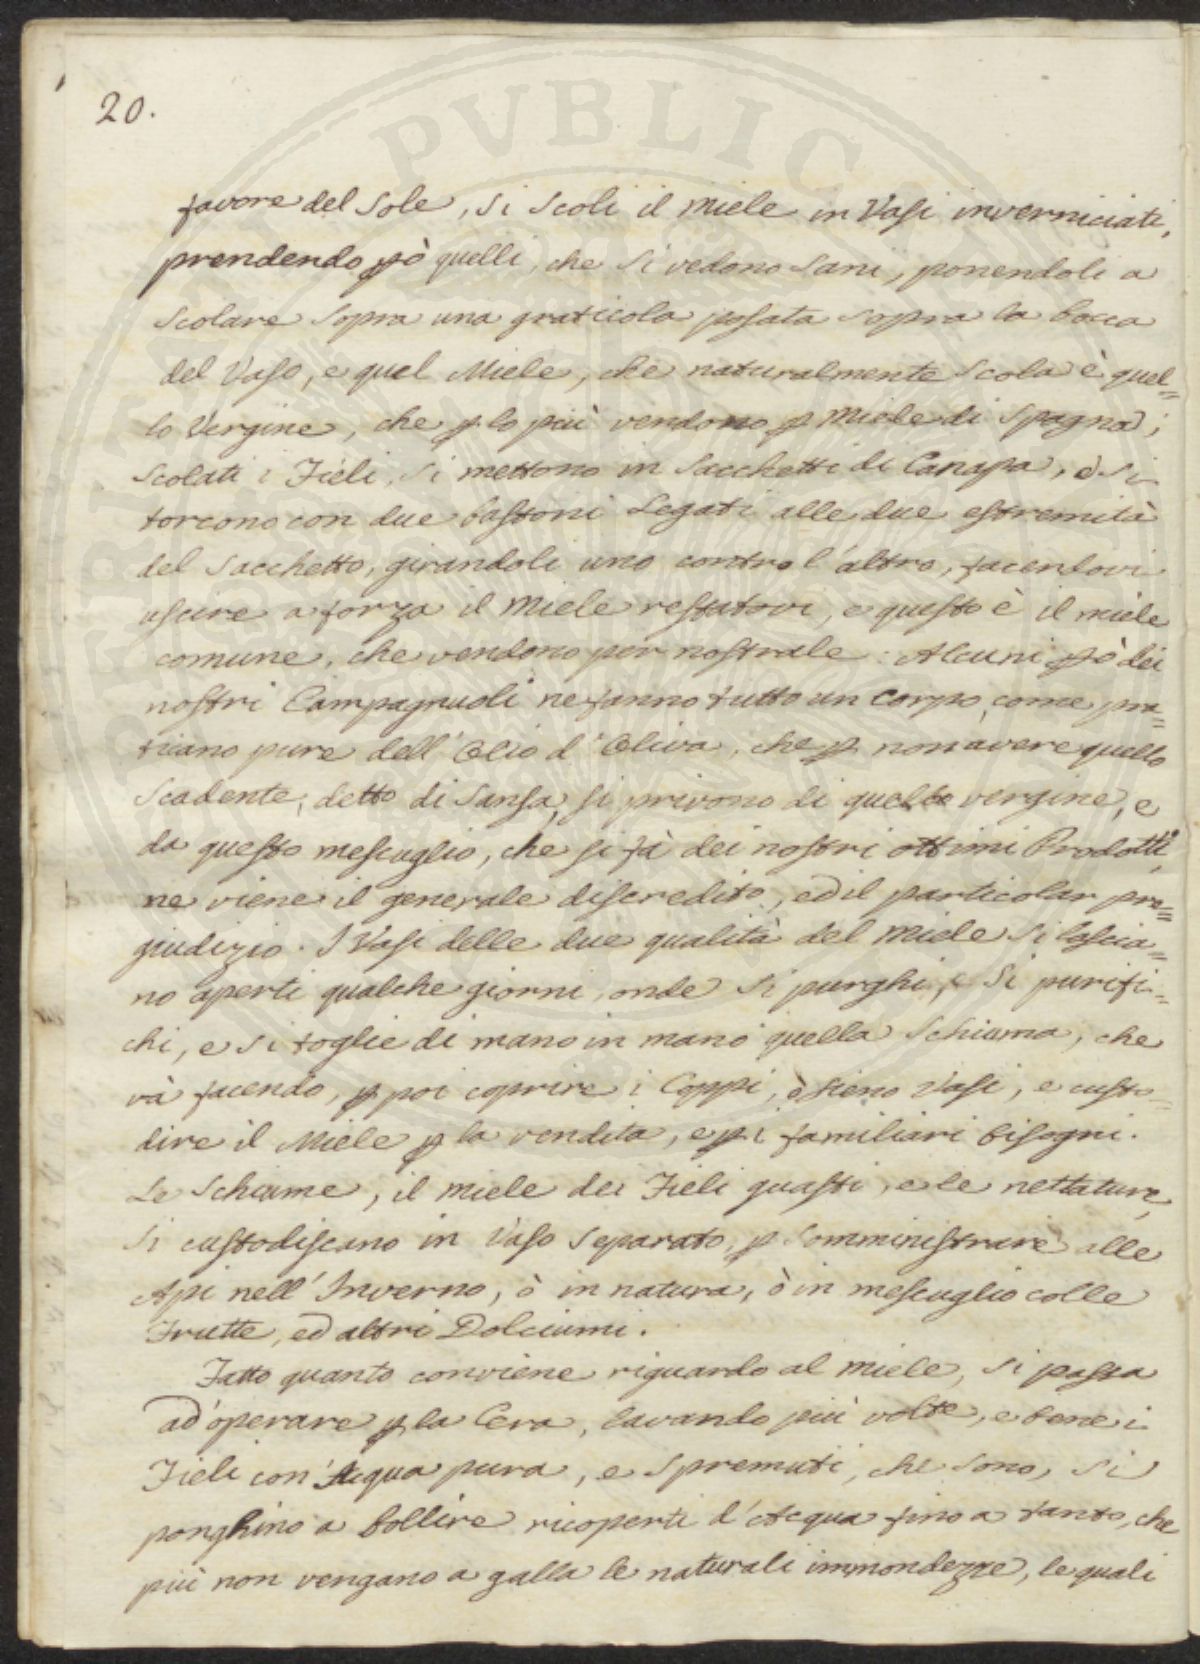 20.
favore del Sole, si scoli il Miele in Vasi inverniciati,
prendendo però quelli, che si vedono sani, ponendoli a
scolare sopra una graticola posata sopra la bocca
del Vaso, e quel Miele, che naturalmente scola è quel=
lo Vergine, che p lo più vendono p Miele di Spagna;
scolati i Fieli, si mettono in sacchetti di Canapa, e si
torcono con due bastoni Legati alle due estremità
del sacchetto, girandoli uno contro l'altro, facendovi
uscire a forza il Miele restatovi, e questo è il miele
comune, che vendono per nostrale. Alcuni però dei
nostri Campagnuoli ne fanno tutto un Corpo, come pra=
ticano pure dell'Olio d'Oliva, che p non avere quello
Scadente, detto di Sansa, si privono di quello vergine, e
da questo mescuglio, che si fà dei nostri ottimi Prodotti,
ne viene il generale discredito, ed il particolar pre=
giudizio. I Vasi delle due qualità del Miele si lascia=
no aperti qualche giorni, onde si purghi, e si purifi=
chi, e si toglie di mano in mano quella Schiuma, che
và facendo, p poi coprire i Coppi, ò sieno Vasi, e custo=
dire il Miele p la vendita, e p i familiari bisogni.
Le Schiume, il miele dei Fieli guasti, e le nettature,
si custodiscano in Vaso Separato, p somministrare alle
Api nell'Inverno, ò in natura, ò in mescuglio colle
Frutte, ed altri Dolciumi.
Fatto quanto conviene riguardo al miele, si passa
ad operare p la Cera, lavando più volte, e bene i
Fieli con Acqua pura, e spremuti, che sono, si
ponghino a bollire ricoperti d'Acqua fino a tanto, che
più non vengano a galla le naturali immondezze, le quali
PUBLIC